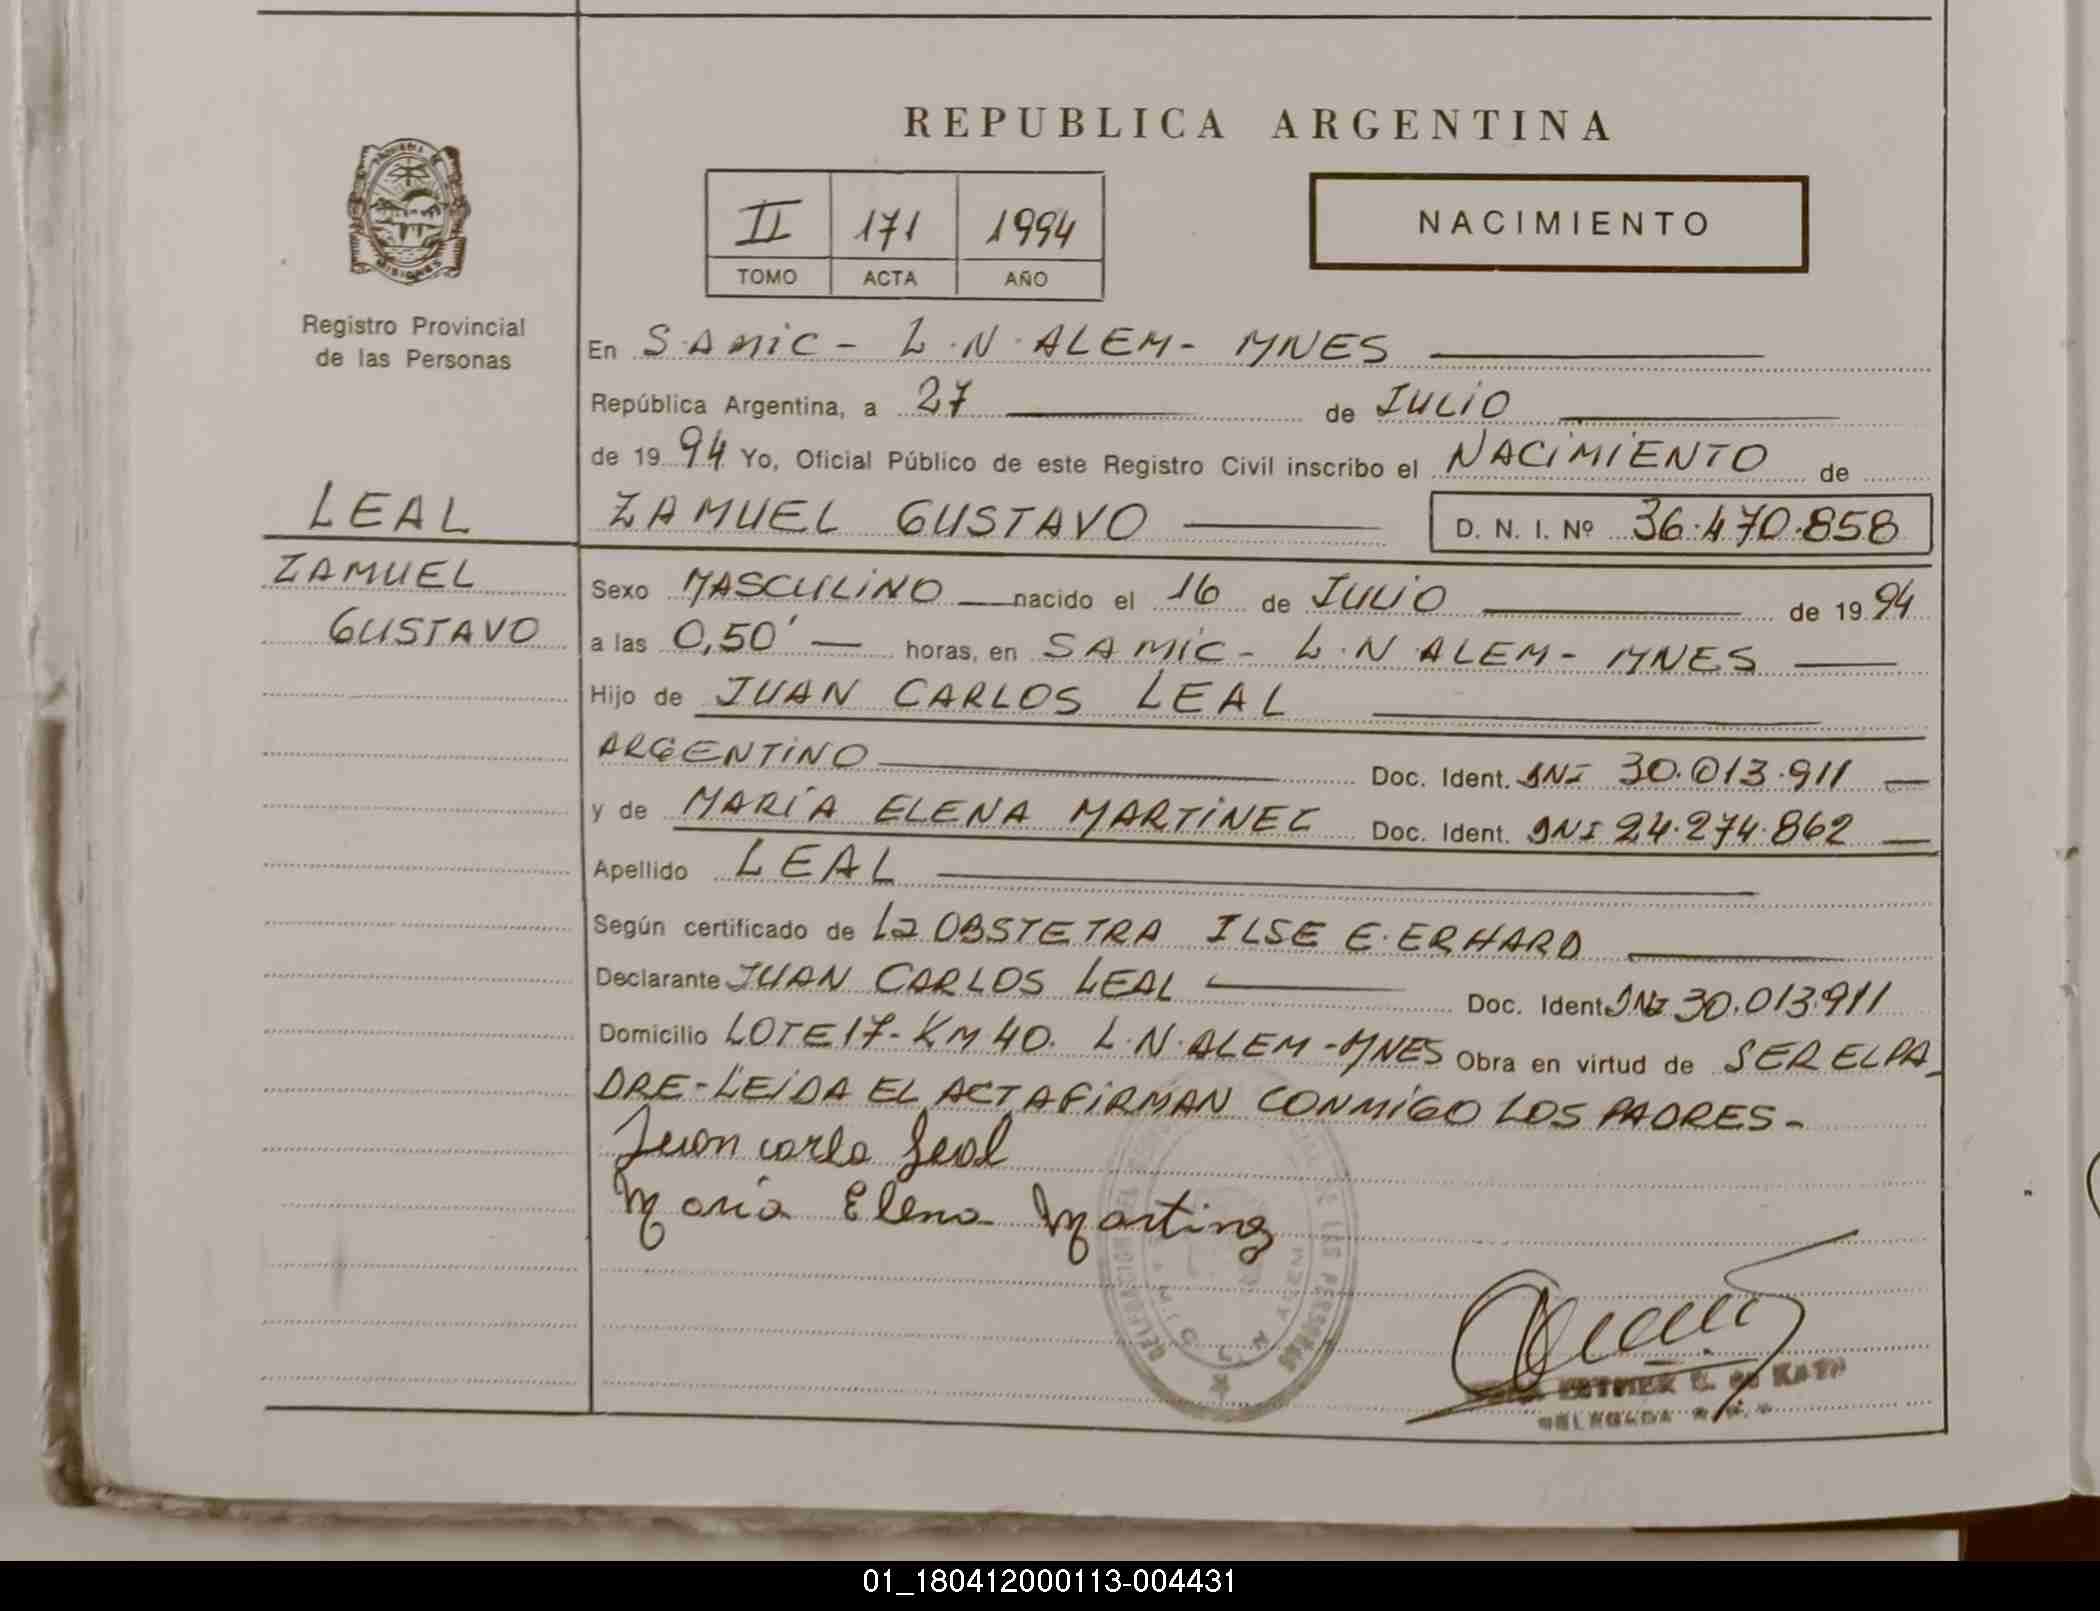 REPUBLICA ARGENTINA
II 171 1994
TOMO ACTA AÑO
NACIMIENTO
MISIONES
Registro Provincial
de las Personas
LEAL
ZAMUEL
GUSTAVO
En SAMIC - L.N. ALEM - MNES
República Argentina, a 27 de JULIO
de 1994 Yo, Oficial Público de este Registro Civil inscribo el NACIMIENTO de
ZAMUEL GUSTAVO D. N. I. Nº 36.470.858
Sexo MASCULINO nacido el 16 de JULIO de 1994
a las 0,50' horas, en SAMIC - L.N ALEM - MNES
Hijo de JUAN CARLOS LEAL
ARGENTINO Doc. Ident. DNI 30.013.911
y de MARÍA ELENA MARTINEZ Doc. Ident. DNI 24.274.862
Apellido LEAL
Según certificado de La OBSTETRA ILSE E. ERHARD
Declarante JUAN CARLOS LEAL Doc. Ident. DNI 30.013.911
Domicilio LOTE 17 - KM 40. L.N. ALEM - MNES Obra en virtud de SER EL PA_
DRE - LEIDA EL ACTA FIRMAN CONMIGO LOS PADRES -
Juan carlo Leal
María Elena Martinez
DE LAS PERSONAS
01_180412000113-004431